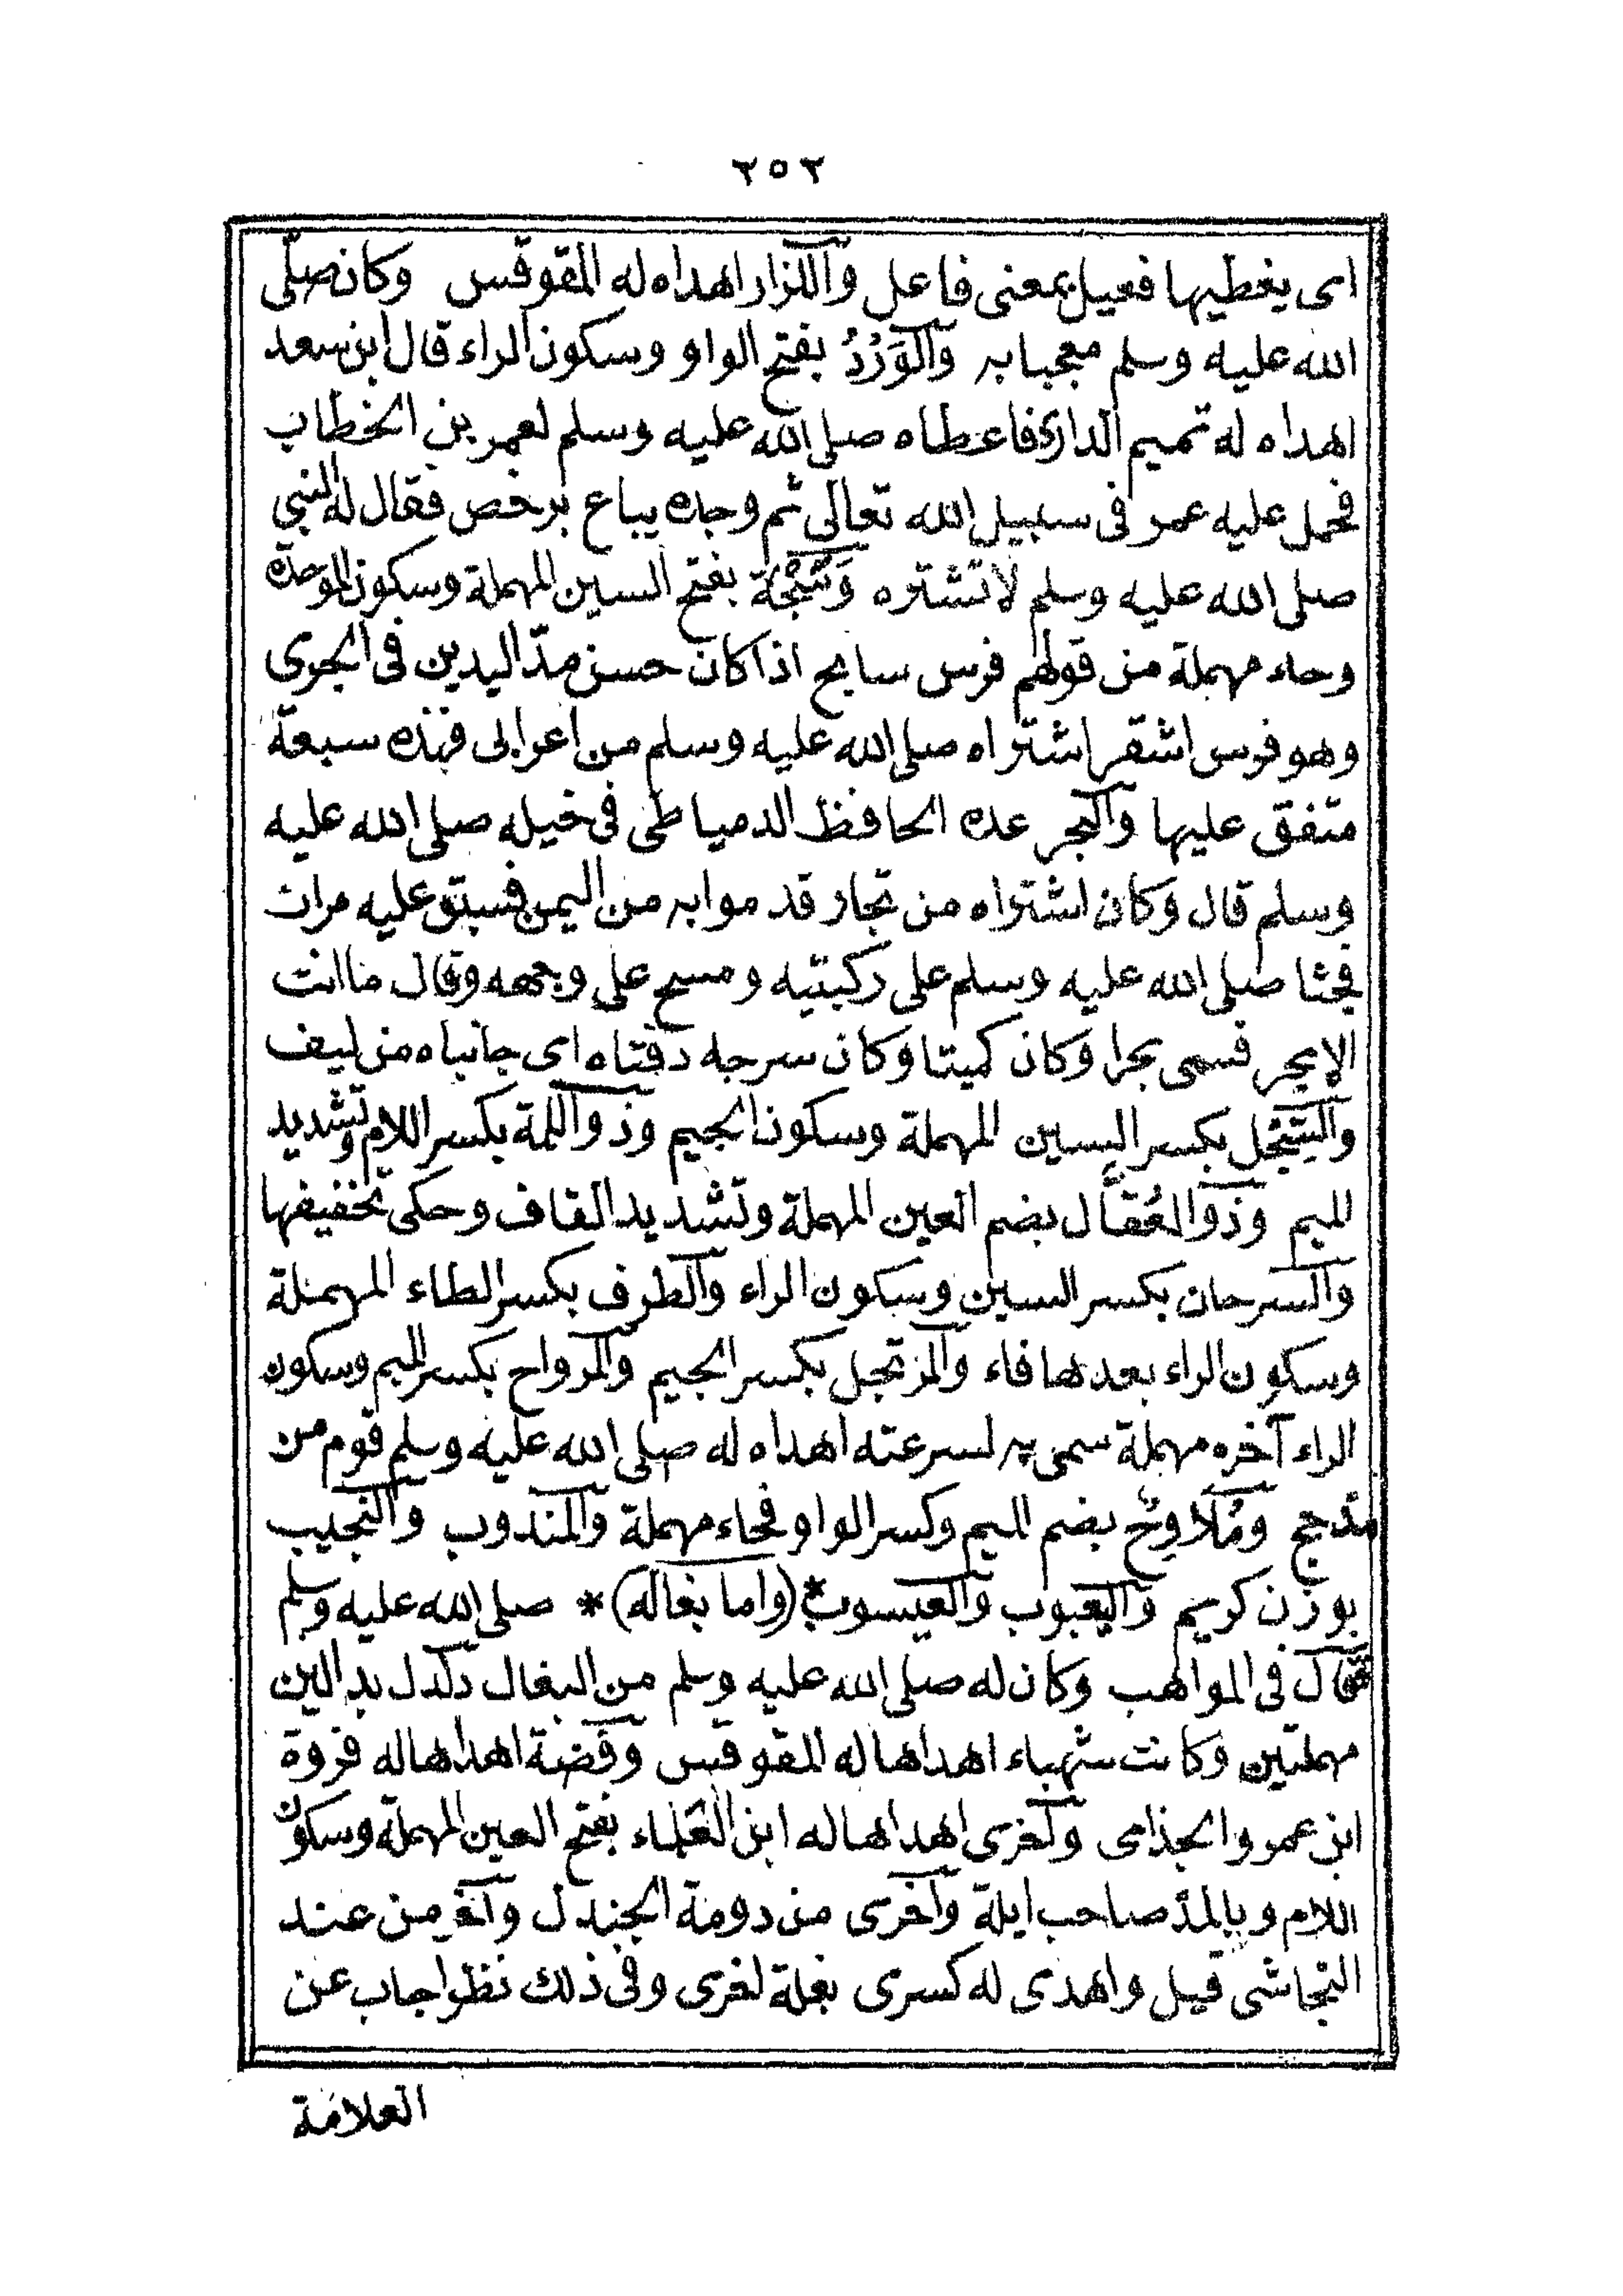 ٢٥٢
اى يغطيها فعيل بمعنى فاعل واللزاز اهداه له المقوقس وكان صلى
الله عليه وسلم معجبا به والوَرْدُ بفتح الواو وسكون الراء قال ابن سعد
اهداه له تميم الدارى فاعطاه صلى الله عليه وسلم لعمر بن الخطاب
فحمل عليه عمر فى سبيل الله تعالى ثم وجده يباع برخص فقال له النبي
صلى الله عليه وسلم لا تشتره وَسَبْحَة بفتح السين المهملة وسكون الموحدة
وحاء مهملة من قولهم فرس سابح اذا كان حسن مدّ اليدين فى الجرى
وهو فرس اشقر اشتراه صلى الله عليه وسلم من اعرابى فهذه سبعة
متفق عليها والبحر عده الحافظ الدمياطى فى خيله صلى الله عليه
وسلم قال وكان اشتراه من تجار قدموا به من اليمن فسبق عليه مرات
فجثا صلى الله عليه وسلم على ركبتيه ومسح على وجهه وقال ما انت
الا بحر فسمى بحرا وكان كميتا وكان سرجه دفتاه اى جانباه من ليف
والسِّجْل بكسر السين المهملة وسكون الجيم وذو اللمة بكسر اللام وتشديد
الميم وذو العُقَّال بضم العين المهملة وتشديد القاف وحكى تخفيفها
والسرحان بكسر السين وسكون الراء والطرف بكسر الطاء المهملة
وسكون الراء بعدها فاء والمرتجل بكسر الجيم والمرواح بكسر الميم وسكون
الراء آخره مهملة سمى به لسرعته اهداه له صلى الله عليه وسلم قوم من
مذحج ومُلَاوِحُ بضم الميم وكسر الواو فحاء مهملة والمندوب والنجيب
بوزن كريم واليعبوب والعيسوب *(واما بغاله)* صلى الله عليه وسلم
فقال فى المواهب وكان له صلى الله عليه وسلم من البغال دلدل بدالين
مهملتين وكانت شهباء اهداها له المقوقس وفضة اهداها له فروة
ابن عمرو الجذامى واخرى اهداها له ابن العَلماء بفتح العين المهملة وسكون
اللام وبالمدّ صاحب ايلة واخرى من دومة الجندل واخرى من عند
النجاشى قيل واهدى له كسرى بغلة اخرى وفى ذلك نظر اجاب عن
العلامة